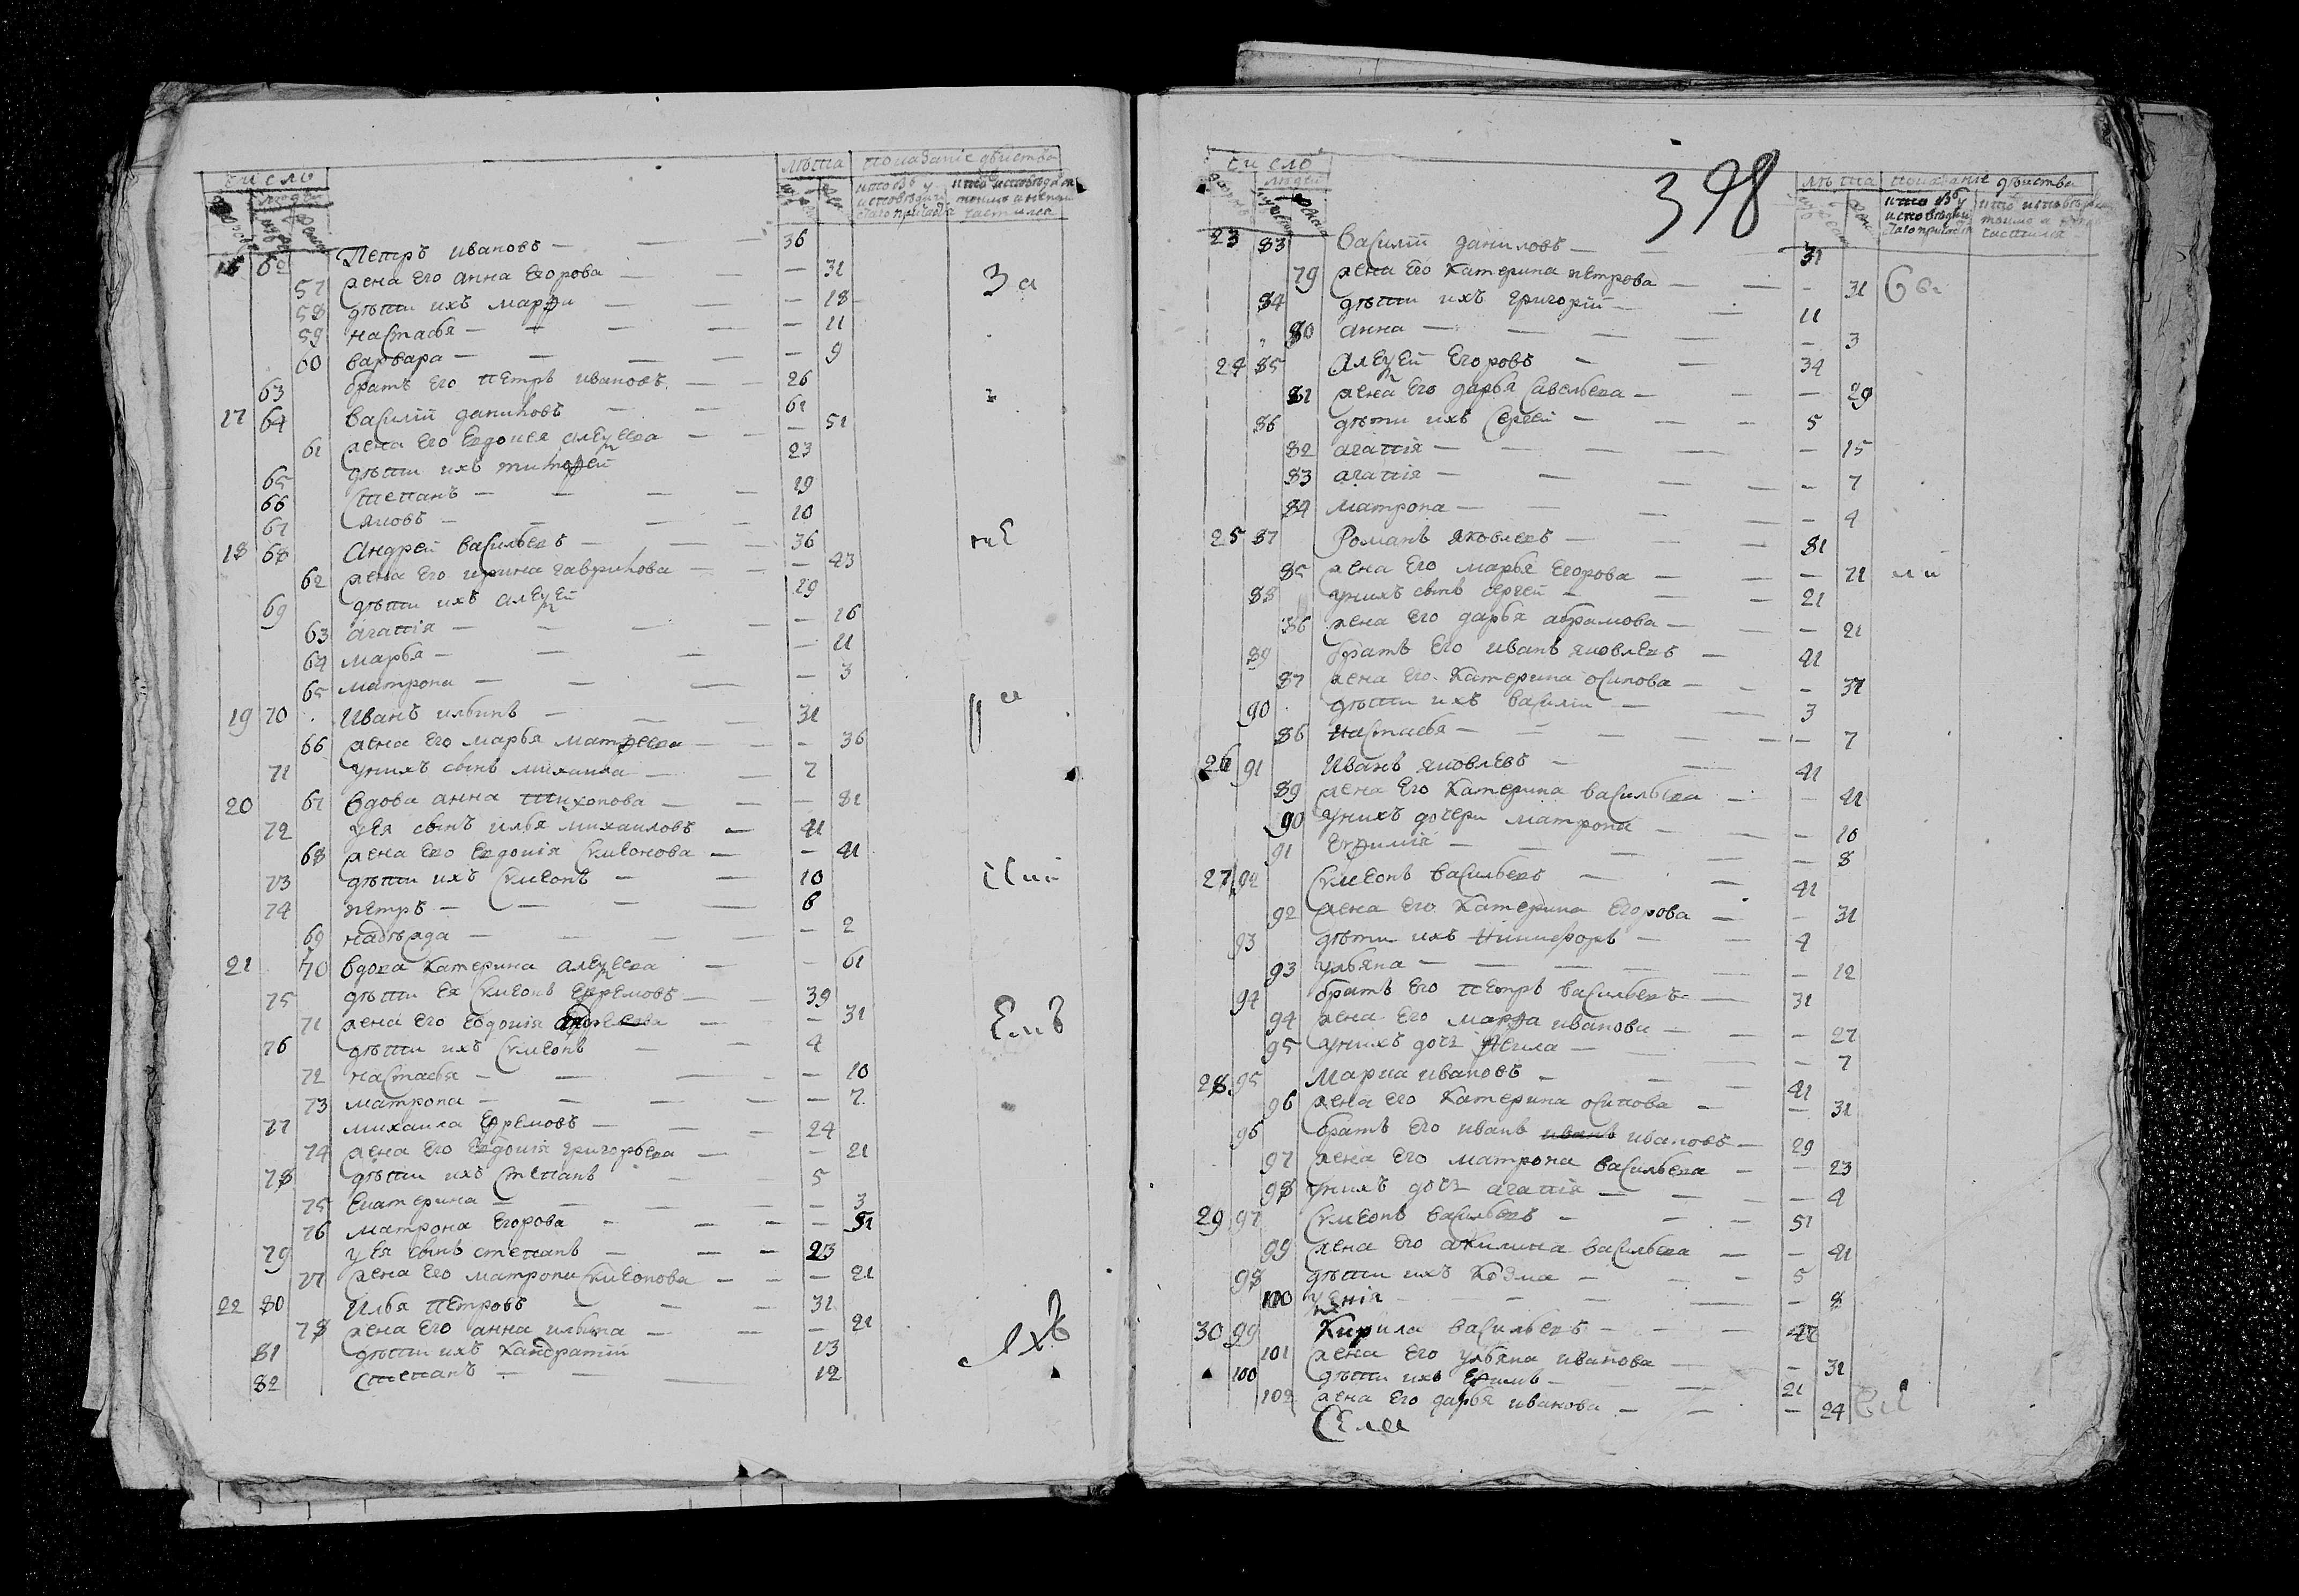 число
лѣта показанiе дѣиства
людей
16 62 Петръ ивановъ — 36
57 жена его анна егорова — 31
58 дѣти ихъ марфа — 18
59 настасья — 11
60 варвара — 9
63 братъ его петръ ивановъ — 26
17 64 василiй даниловъ — 61
61 жена его евдокея алеѯеева — 51
65 дѣти ихъ тимофей 23
66 степанъ — 19
67 яковъ — 10
18 68 андрей васильевъ — 36
62 жена его ирина гаврилова — 43
69 дѣти ихъ алеѯей 19
63 агапiя — 16
64 марья — 11
65 матрона — 3
19 70 иванъ ильинъ — 31
66 жена его марья матфеева — 36
71 у нихъ сынъ михаила — 7
20 67 вдова анна тихонова — 81
72 у ея сынъ илья михаиловъ — 41
68 жена его евдокiя симеонова — 41
73 дѣти ихъ симеонъ — 10
74 петръ — 6
69 надѣжда — 2
21 70 вдова катерина алеѯеева — 61
75 дѣти ея симеонъ ефремовъ — 39
71 жена его евдокiя — 31
76 дѣти ихъ симеонъ — 4
72 настасья — 10
73 матрона — 7
77 михаила ефремовъ — 24
74 жена его евдокiя григорьева — 21
78 дѣти ихъ степанъ — 5
75 екатерина — 3
76 матрона егорова — 51
79 у ея сынъ степанъ — 23
77 жена его матрона симеонова — 21
22 80 илья петровъ — 31
78 жена его анна ильина — 21
81 дѣти ихъ кандратiй 13
82 степанъ — 12
398
число
людей
лѣта показанiе дѣиства
23 83 василiй даниловъ — 31
79 жена его катерина петрова — 31
84 дѣти ихъ григорiй — 11
80 анна — 3
24 85 алеѯей егоровъ — 34
81 жена его дарья савельева — 29
86 дѣти ихъ сергей — 5
82 агапiя — 15
83 агапiя — 7
84 матрона — 4
25 87 романъ яковлевъ — 81
85 жена его марья егорова — 71
88 у нихъ сынъ сергей — 21
86 жена его дарья абрамова — 21
89 братъ его иванъ яковлевъ — 41
87 жена его катерина осипова — 31
90 дѣти ихъ василiи — 3
86 настасья — 7
26 91 иванъ яковлевъ — 41
89 жена его катерина васильева — 41
90 у нихъ дочери матрона — 10
91 ефимiя — 8
27 92 симеонъ васильевъ — 41
92 жена его катерина егорова — 31
93 дѣти ихъ никифоръ — 4
93 ульяна — 12
94 братъ его петръ васильевъ — 31
94 жена его марфа иванова — 27
95 у нихъ дочь — 7
28 95 марка ивановъ — 41
96 жена его катерина осипова — 31
96 братъ его иванъ иванъ ивановъ — 29
97 жена его матрона васильева — 23
98 у нихъ дочь агапiя — 4
29 97 симеонъ васильевъ — 51
99 жена его акилина васильева — 41
98 дѣти ихъ козма — 5
100 ѯенiя — 8
30 99 кирила васильевъ —
101 жена его ульяна иванова — 31
100 дѣти ихъ ефимъ — 21
102 жена его дарья иванова — 24